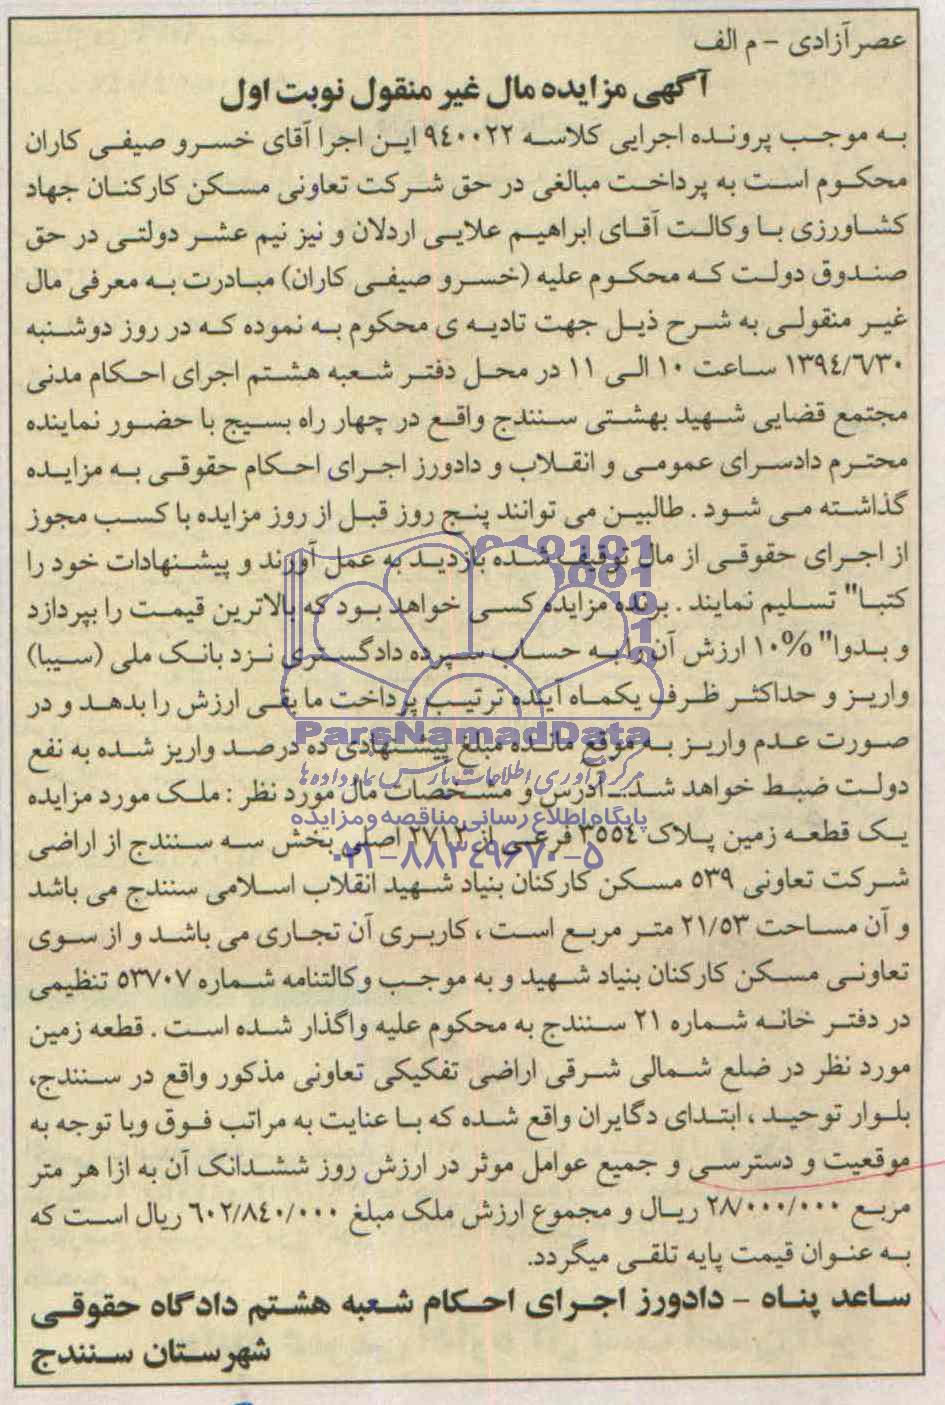 عصر آزادی - م الف
آگهی مزایده مال غیر منقول نوبت اول
به موجب پرونده اجرایی کلاسه ۹۴۰۰۲۲ این اجرا آقای خسرو صیفی کاران
محکوم است به پرداخت مبالغی در حق شرکت تعاونی مسکن کارکنان جهاد
کشاورزی با وکالت آقای ابراهیم علایی اردلان و نیز نیم عشر دولتی در حق
صندوق دولت که محکوم علیه (خسرو صیفی کاران) مبادرت به معرفی مال
غیر منقولی به شرح ذیل جهت تادیه ی محکوم به نموده که در روز دوشنبه
۱۳۹٤/٦/۳۰ ساعت ۱۰ الی ۱۱ در محل دفتر شعبه هشتم اجرای احکام مدنی
مجتمع قضایی شهید بهشتی سنندج واقع در چهار راه بسیج با حضور نماینده
محترم دادسرای عمومی و انقلاب و دادورز اجرای احکام حقوقی به مزایده
گذاشته می شود . طالبین می توانند پنج روز قبل از روز مزایده با کسب مجوز
از اجرای حقوقی از مال توقیف شده بازدید به عمل آورند و پیشنهادات خود را
کتبا" تسلیم نمایند . برنده مزایده کسی خواهد بود که بالاترین قیمت را بپردازد
و بدوا" ۱۰% ارزش آن را به حساب سپرده دادگستری نزد بانک ملی (سیبا)
واریز و حداکثر ظرف یکماه آینده ترتیب پرداخت ما بقی ارزش را بدهد و در
صورت عدم واریز به موقع مانده مبلغ پیشنهادی ده درصد واریز شده به نفع
دولت ضبط خواهد شد. آدرس و مشخصات مال مورد نظر : ملک مورد مزایده
یک قطعه زمین پلاک ۳۵۵٤ فرعی از ۲۷۱۲ اصلی بخش سه سنندج از اراضی
شرکت تعاونی ۵۳۹ مسکن کارکنان بنیاد شهید انقلاب اسلامی سنندج می باشد
و آن مساحت ۲۱/۵۳ متر مربع است ، کاربری آن تجاری می باشد و از سوی
تعاونی مسکن کارکنان بنیاد شهید و به موجب وکالتنامه شماره ۵۳۷۰۷ تنظیمی
در دفتر خانه شماره ۲۱ سنندج به محکوم علیه واگذار شده است . قطعه زمین
مورد نظر در ضلع شمالی شرقی اراضی تفکیکی تعاونی مذکور واقع در سنندج،
بلوار توحید ، ابتدای دگایران واقع شده که با عنایت به مراتب فوق وبا توجه به
موقعیت و دسترسی و جمیع عوامل موثر در ارزش روز ششدانک آن به ازا هر متر
مربع ۲۸/۰۰۰/۰۰۰ ریال و مجموع ارزش ملک مبلغ ٦۰۲/۸٤۰/۰۰۰ ریال است که
به عنوان قیمت پایه تلقی میگردد.
ساعد پناه - دادورز اجرای احکام شعبه هشتم دادگاه حقوقی
شهرستان سنندج
ParsNamadData
مرکز فرآوری اطلاعات پارس نماد داده ها
پایگاه اطلاع رسانی مناقصه و مزایده
۰۲۱-۸۸۳۴۹۶۷۰-۵